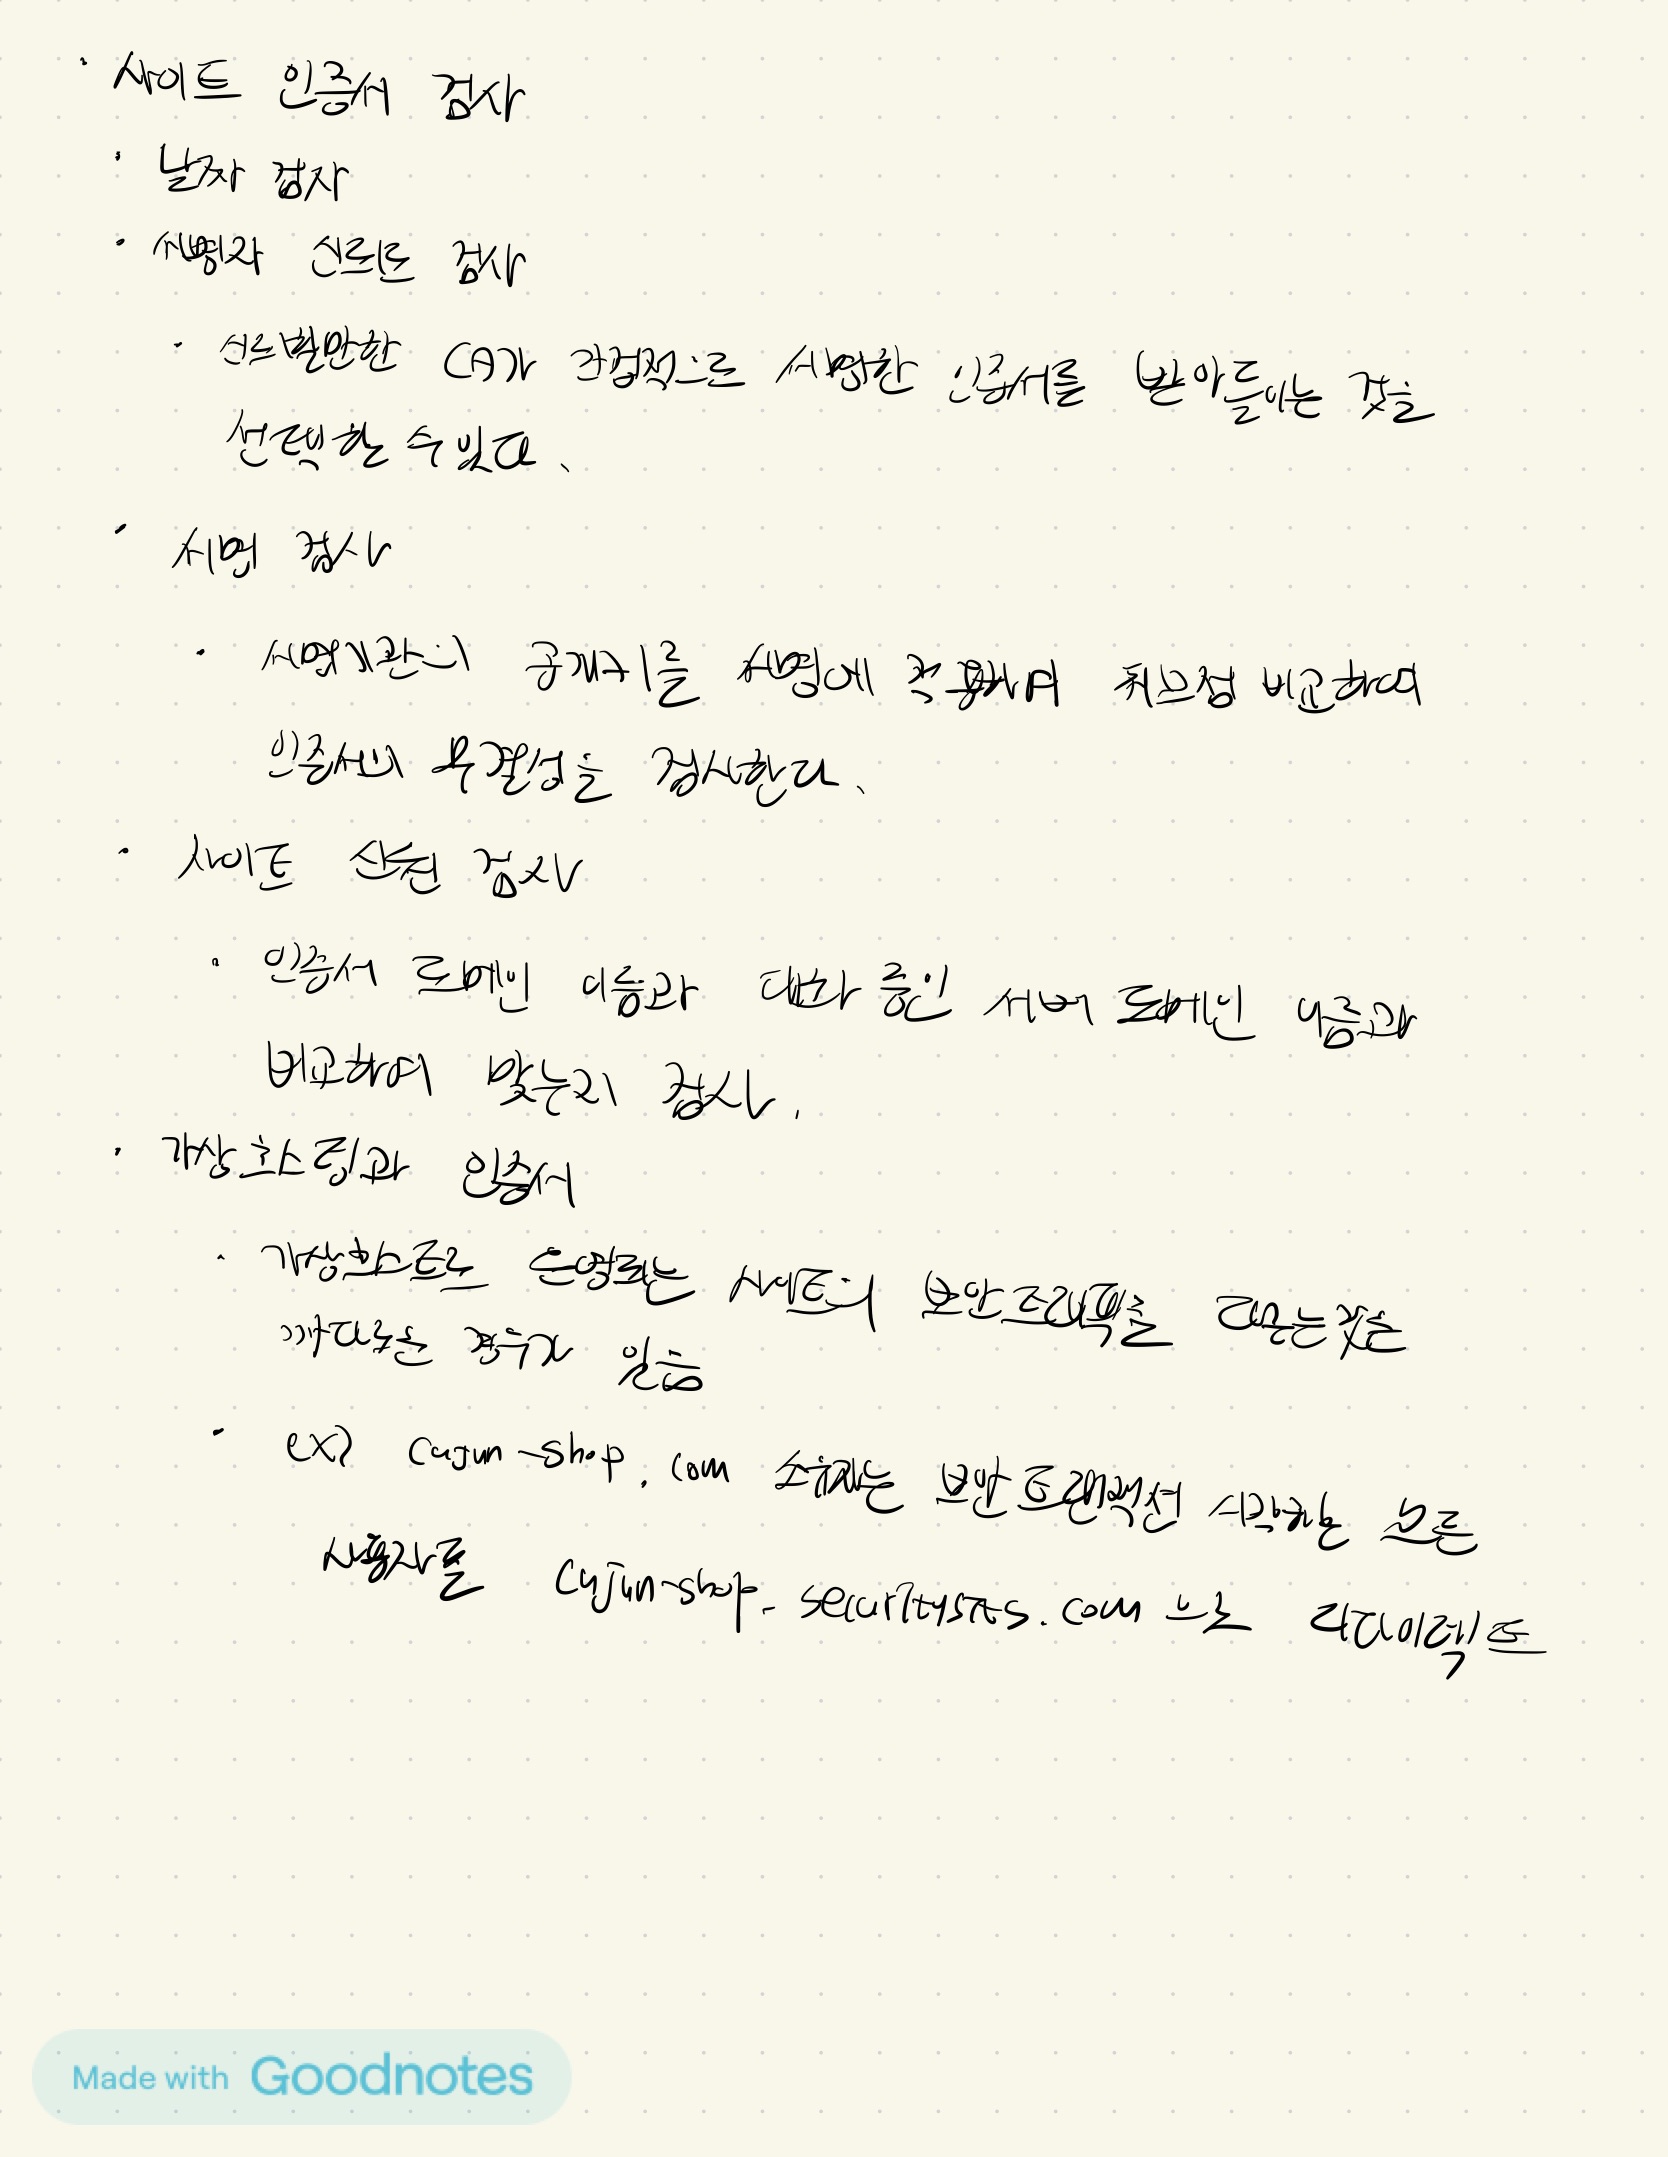 · 사이트 인증서 검사
· 날짜 검사
· 서명자 신뢰도 검사
· 신뢰할만한 CA가 간접적으로 서명한 인증서를 받아들이는 것을
선택할 수 있다.
· 서명 검사
· 서명기관의 공개키를 서명에 적용하여 체크섬 비교하여
인증서의 무결성을 검사한다.
· 사이트 신원 검사
· 인증서 도메인 이름과 대화 중인 서버 도메인 이름과
비교하여 맞는지 검사.
· 가상호스팅과 인증서
· 가상호스트로 운영되는 사이트의 보안트래픽을 다루는것은
까다로운 경우가 있음
· ex) cajun-shop.com 소유자는 보안 트랜잭션 시작하는 모든
사용자를 cajun-shop.securitysites.com으로 리다이렉트
Made with Goodnotes